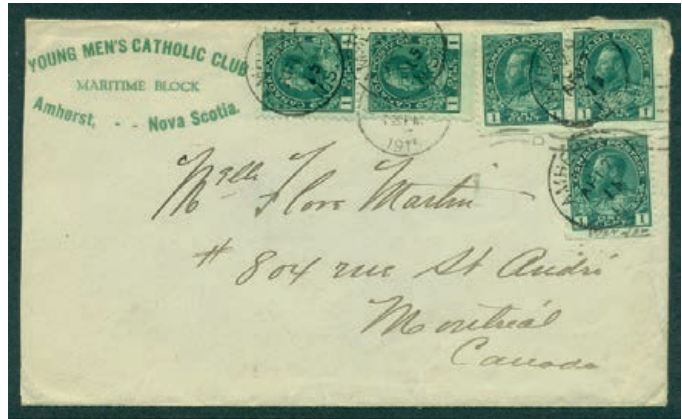 YOUNG MEN'S CATHOLIC CLUB
MARITIME BLOCK
Amherst, - - Nova Scotia.
CANADA POSTAGE
1 1
Mlle Flora Martin
# 804 rue St André
Montréal
Canada